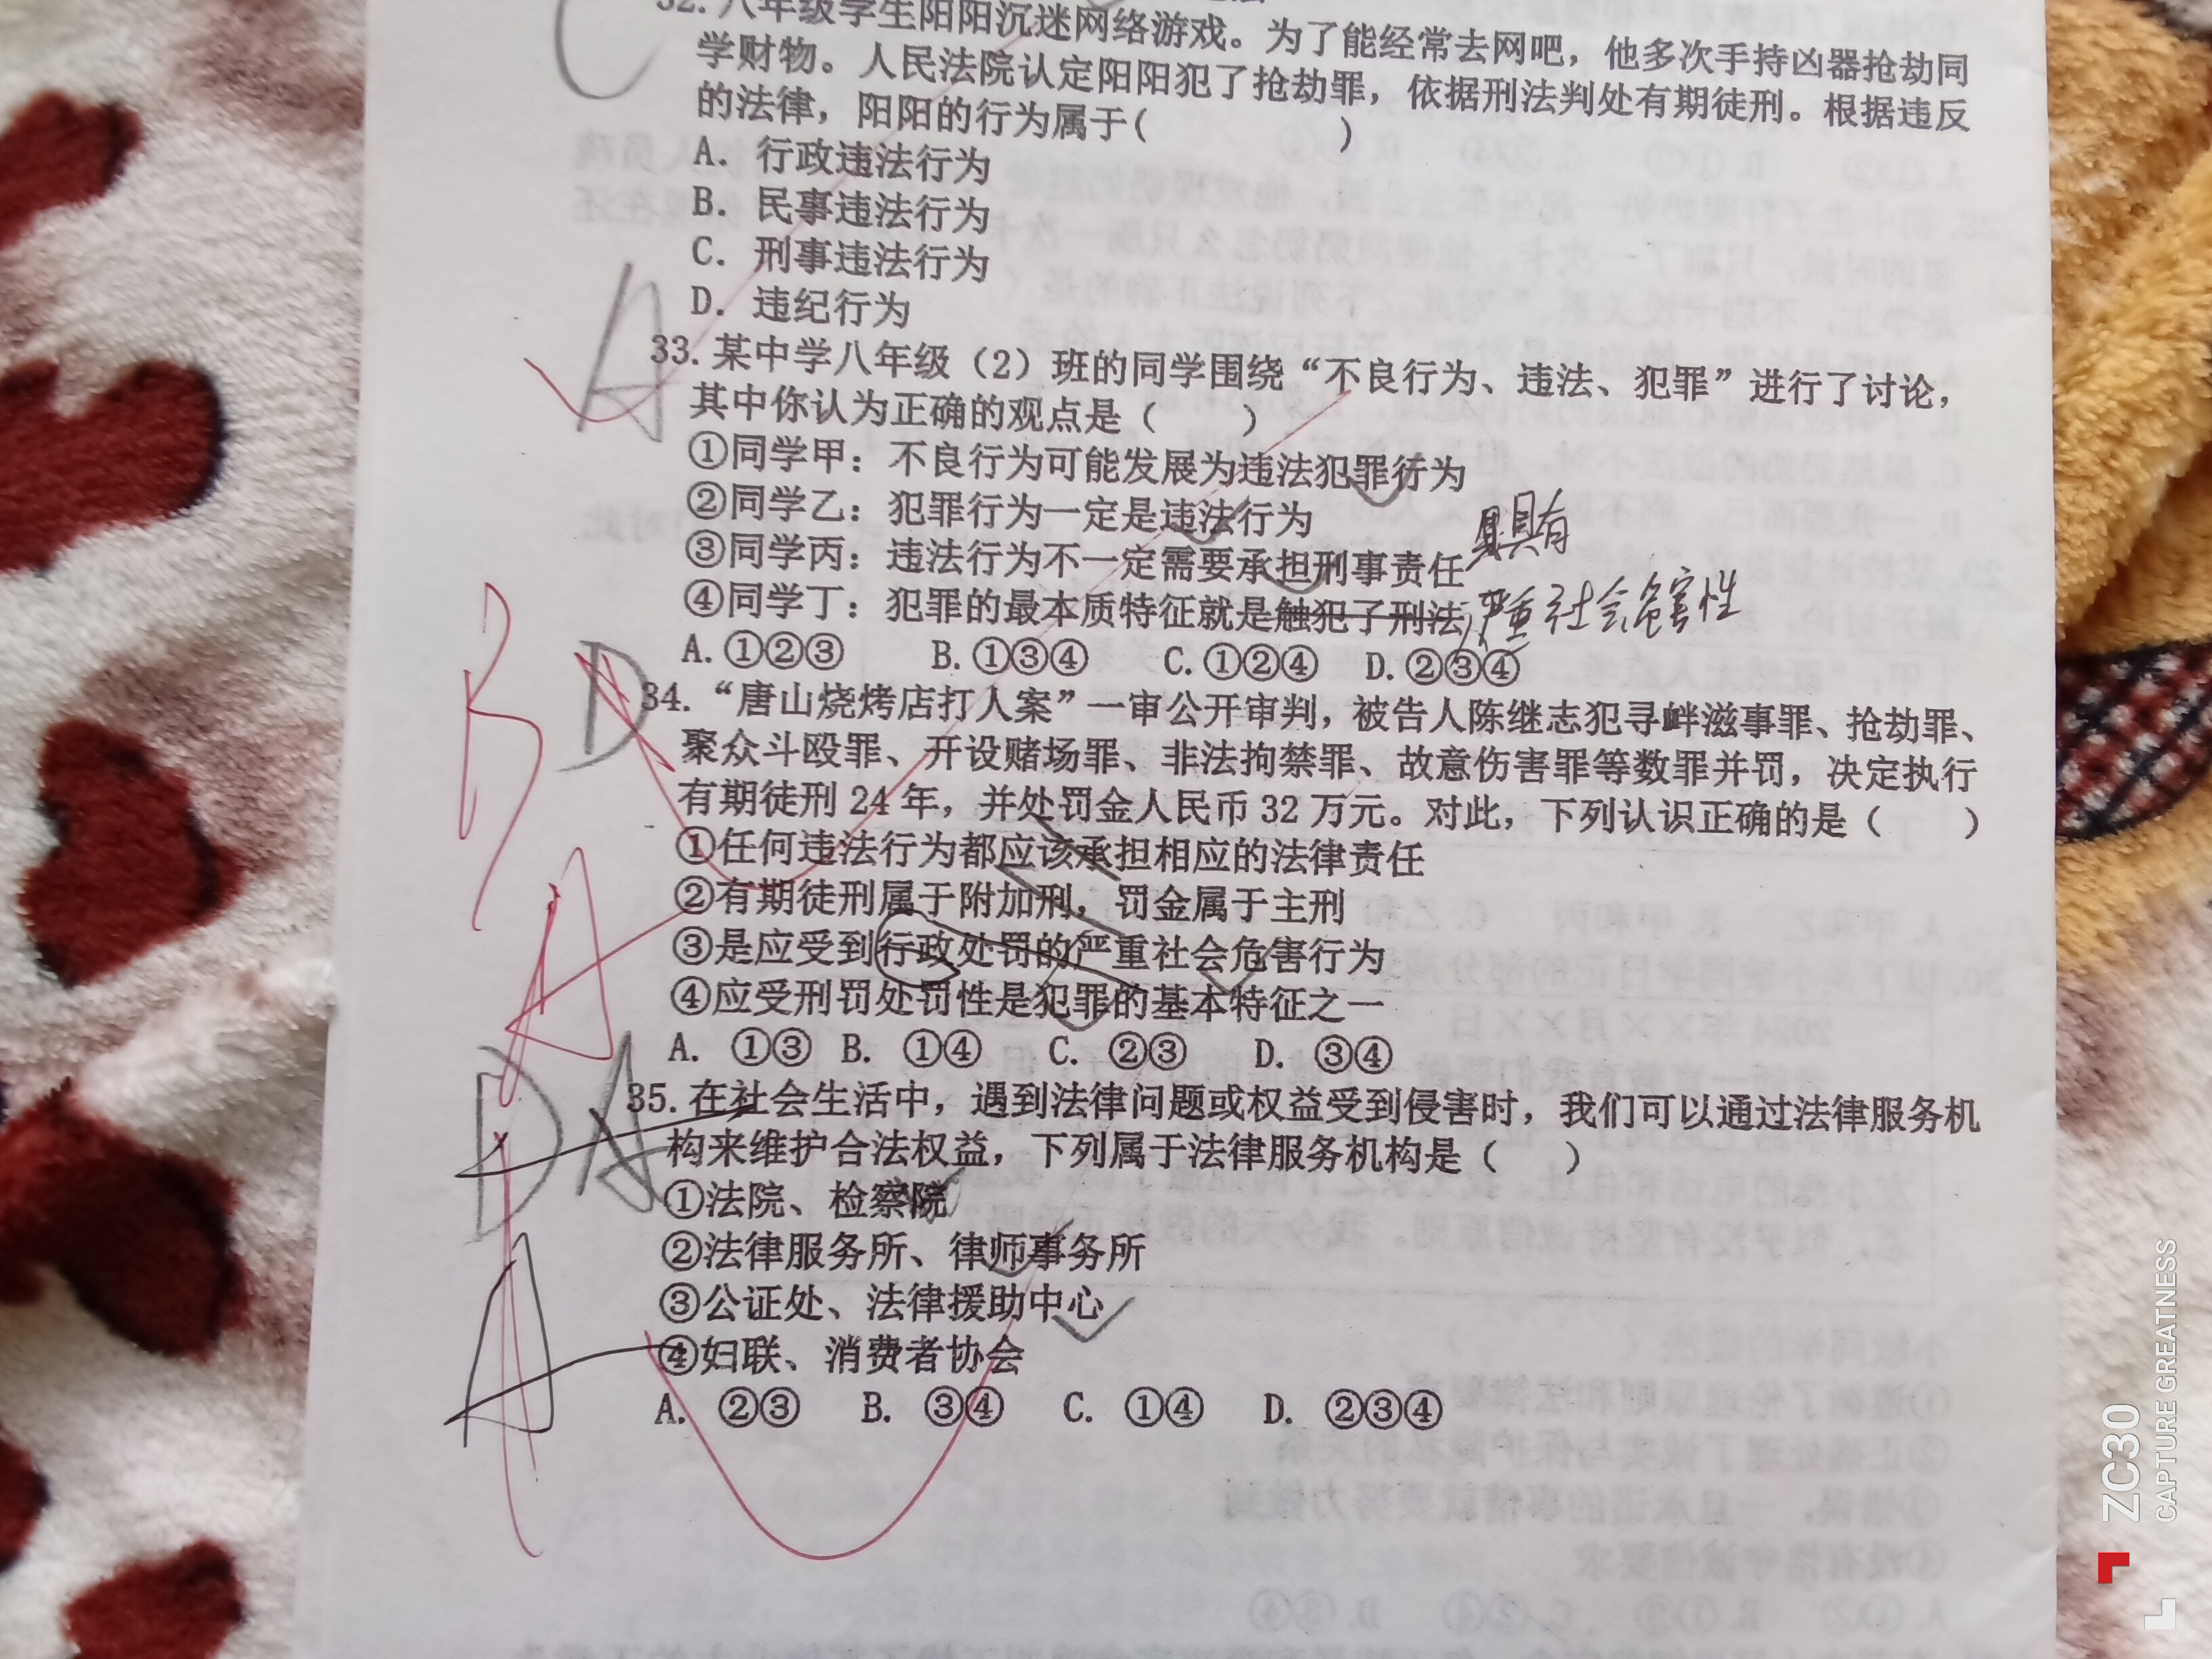 32. 八年级学生阳阳沉迷网络游戏。为了能经常去网吧，他多次手持凶器抢劫同
学财物。人民法院认定阳阳犯了抢劫罪，依据刑法判处有期徒刑。根据违反
的法律，阳阳的行为属于( )
C
A. 行政违法行为
B. 民事违法行为
C. 刑事违法行为
D. 违纪行为
A
33. 某中学八年级（2）班的同学围绕“不良行为、违法、犯罪”进行了讨论，
其中你认为正确的观点是（ ）
①同学甲：不良行为可能发展为违法犯罪行为
②同学乙：犯罪行为一定是违法行为
③同学丙：违法行为不一定需要承担刑事责任
具有
④同学丁：犯罪的最本质特征就是触犯了刑法
严重社会危害性
A. ①②③ B. ①③④ C. ①②④ D. ②③④
B D
34. “唐山烧烤店打人案”一审公开审判，被告人陈继志犯寻衅滋事罪、抢劫罪、
聚众斗殴罪、开设赌场罪、非法拘禁罪、故意伤害罪等数罪并罚，决定执行
有期徒刑 24 年，并处罚金人民币 32 万元。对此，下列认识正确的是（ ）
①任何违法行为都应该承担相应的法律责任
②有期徒刑属于附加刑，罚金属于主刑
③是应受到行政处罚的严重社会危害行为
④应受刑罚处罚性是犯罪的基本特征之一
A. ①③ B. ①④ C. ②③ D. ③④
A
D A
35. 在社会生活中，遇到法律问题或权益受到侵害时，我们可以通过法律服务机
构来维护合法权益，下列属于法律服务机构是（ ）
①法院、检察院
②法律服务所、律师事务所
③公证处、法律援助中心
④妇联、消费者协会
A
A. ②③ B. ③④ C. ①④ D. ②③④
ZC30
CAPTURE GREATNESS